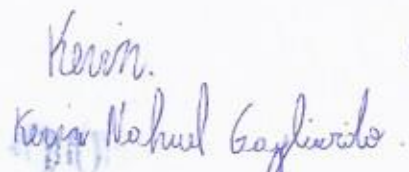 Kevin.
Kevin Nahuel Gagliardo.